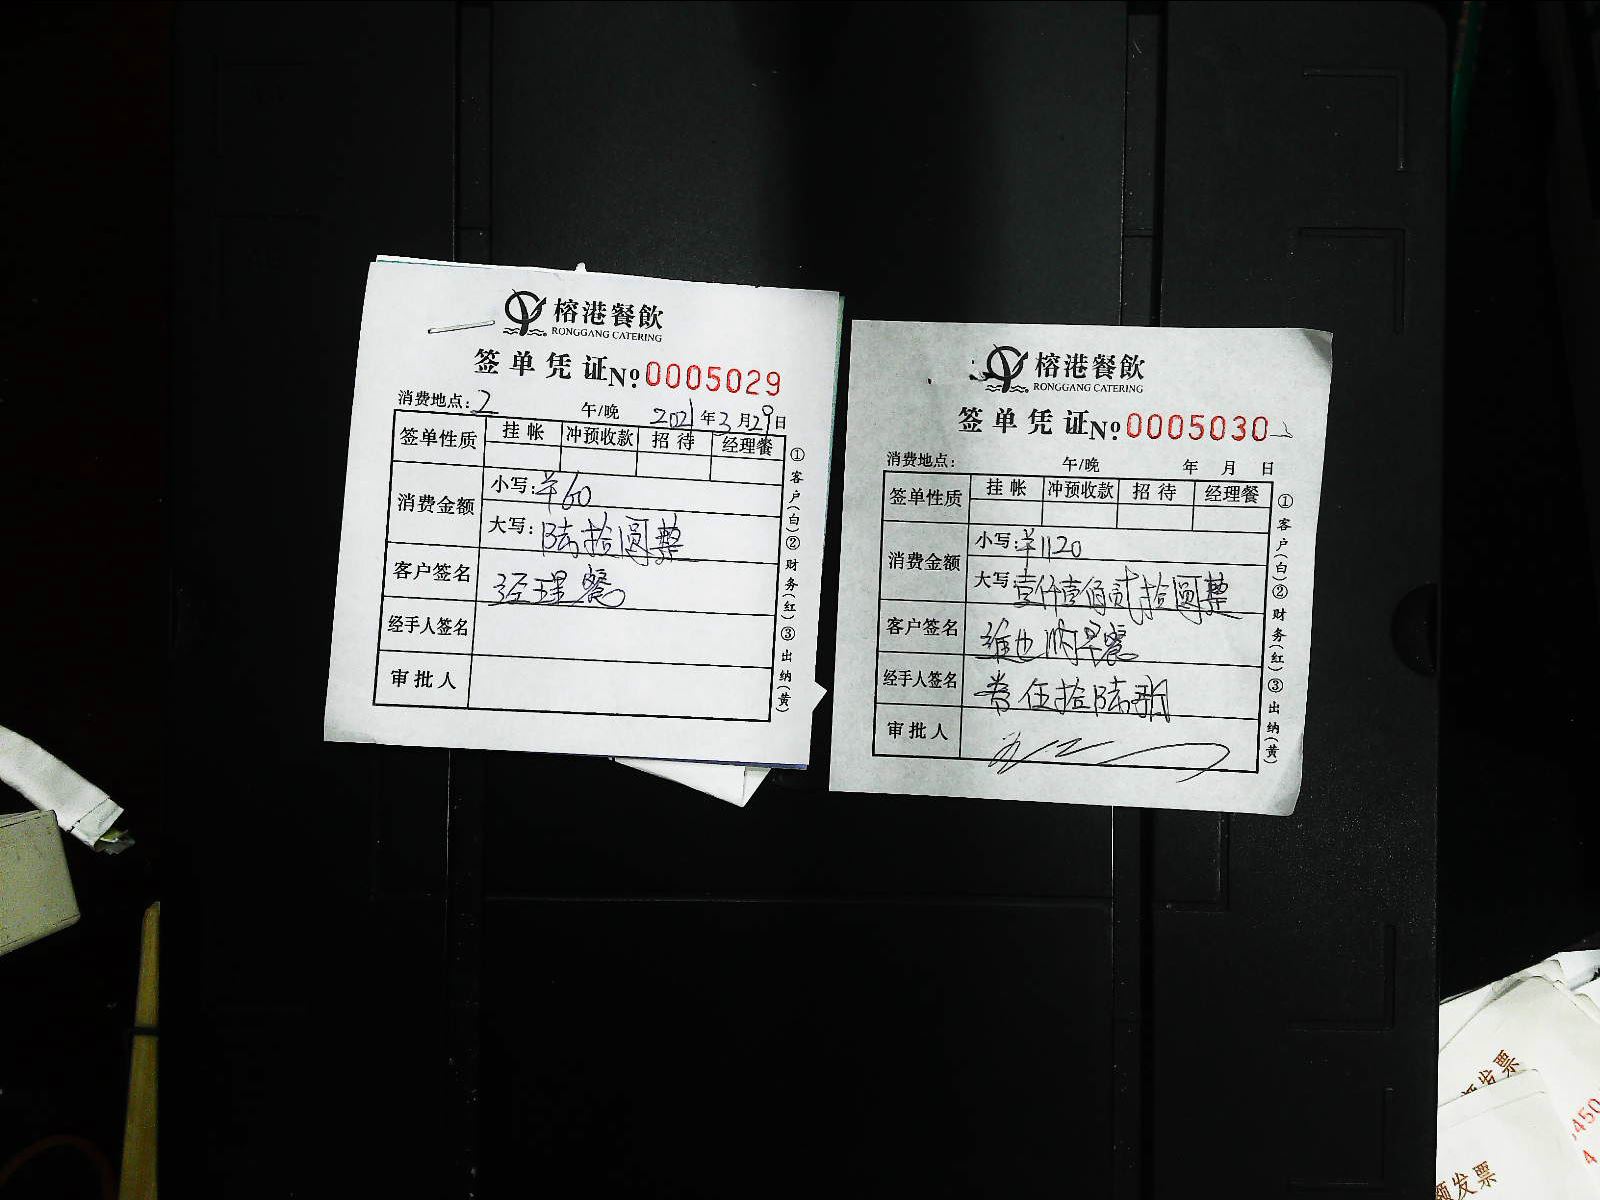 榕港餐飲
RONGGANG CATERING
签单凭证№:0005029
消费地点:2 午/晚 2021年3月29日
签单性质 挂帐 冲预收款 招待 经理餐
消费金额 小写:¥60
大写:陆拾圆整
客户签名 经理餐
经手人签名
审批人
①客户(白)②财务(红)③出纳(黄)
榕港餐飲
RONGGANG CATERING
签单凭证№:0005030
消费地点: 午/晚 年 月 日
签单性质 挂帐 冲预收款 招待 经理餐
消费金额 小写:¥1120
大写:壹仟壹佰贰拾圆整
客户签名 维也纳早餐
经手人签名
审批人
①客户(白)②财务(红)③出纳(黄)
发票
450
4
额发票